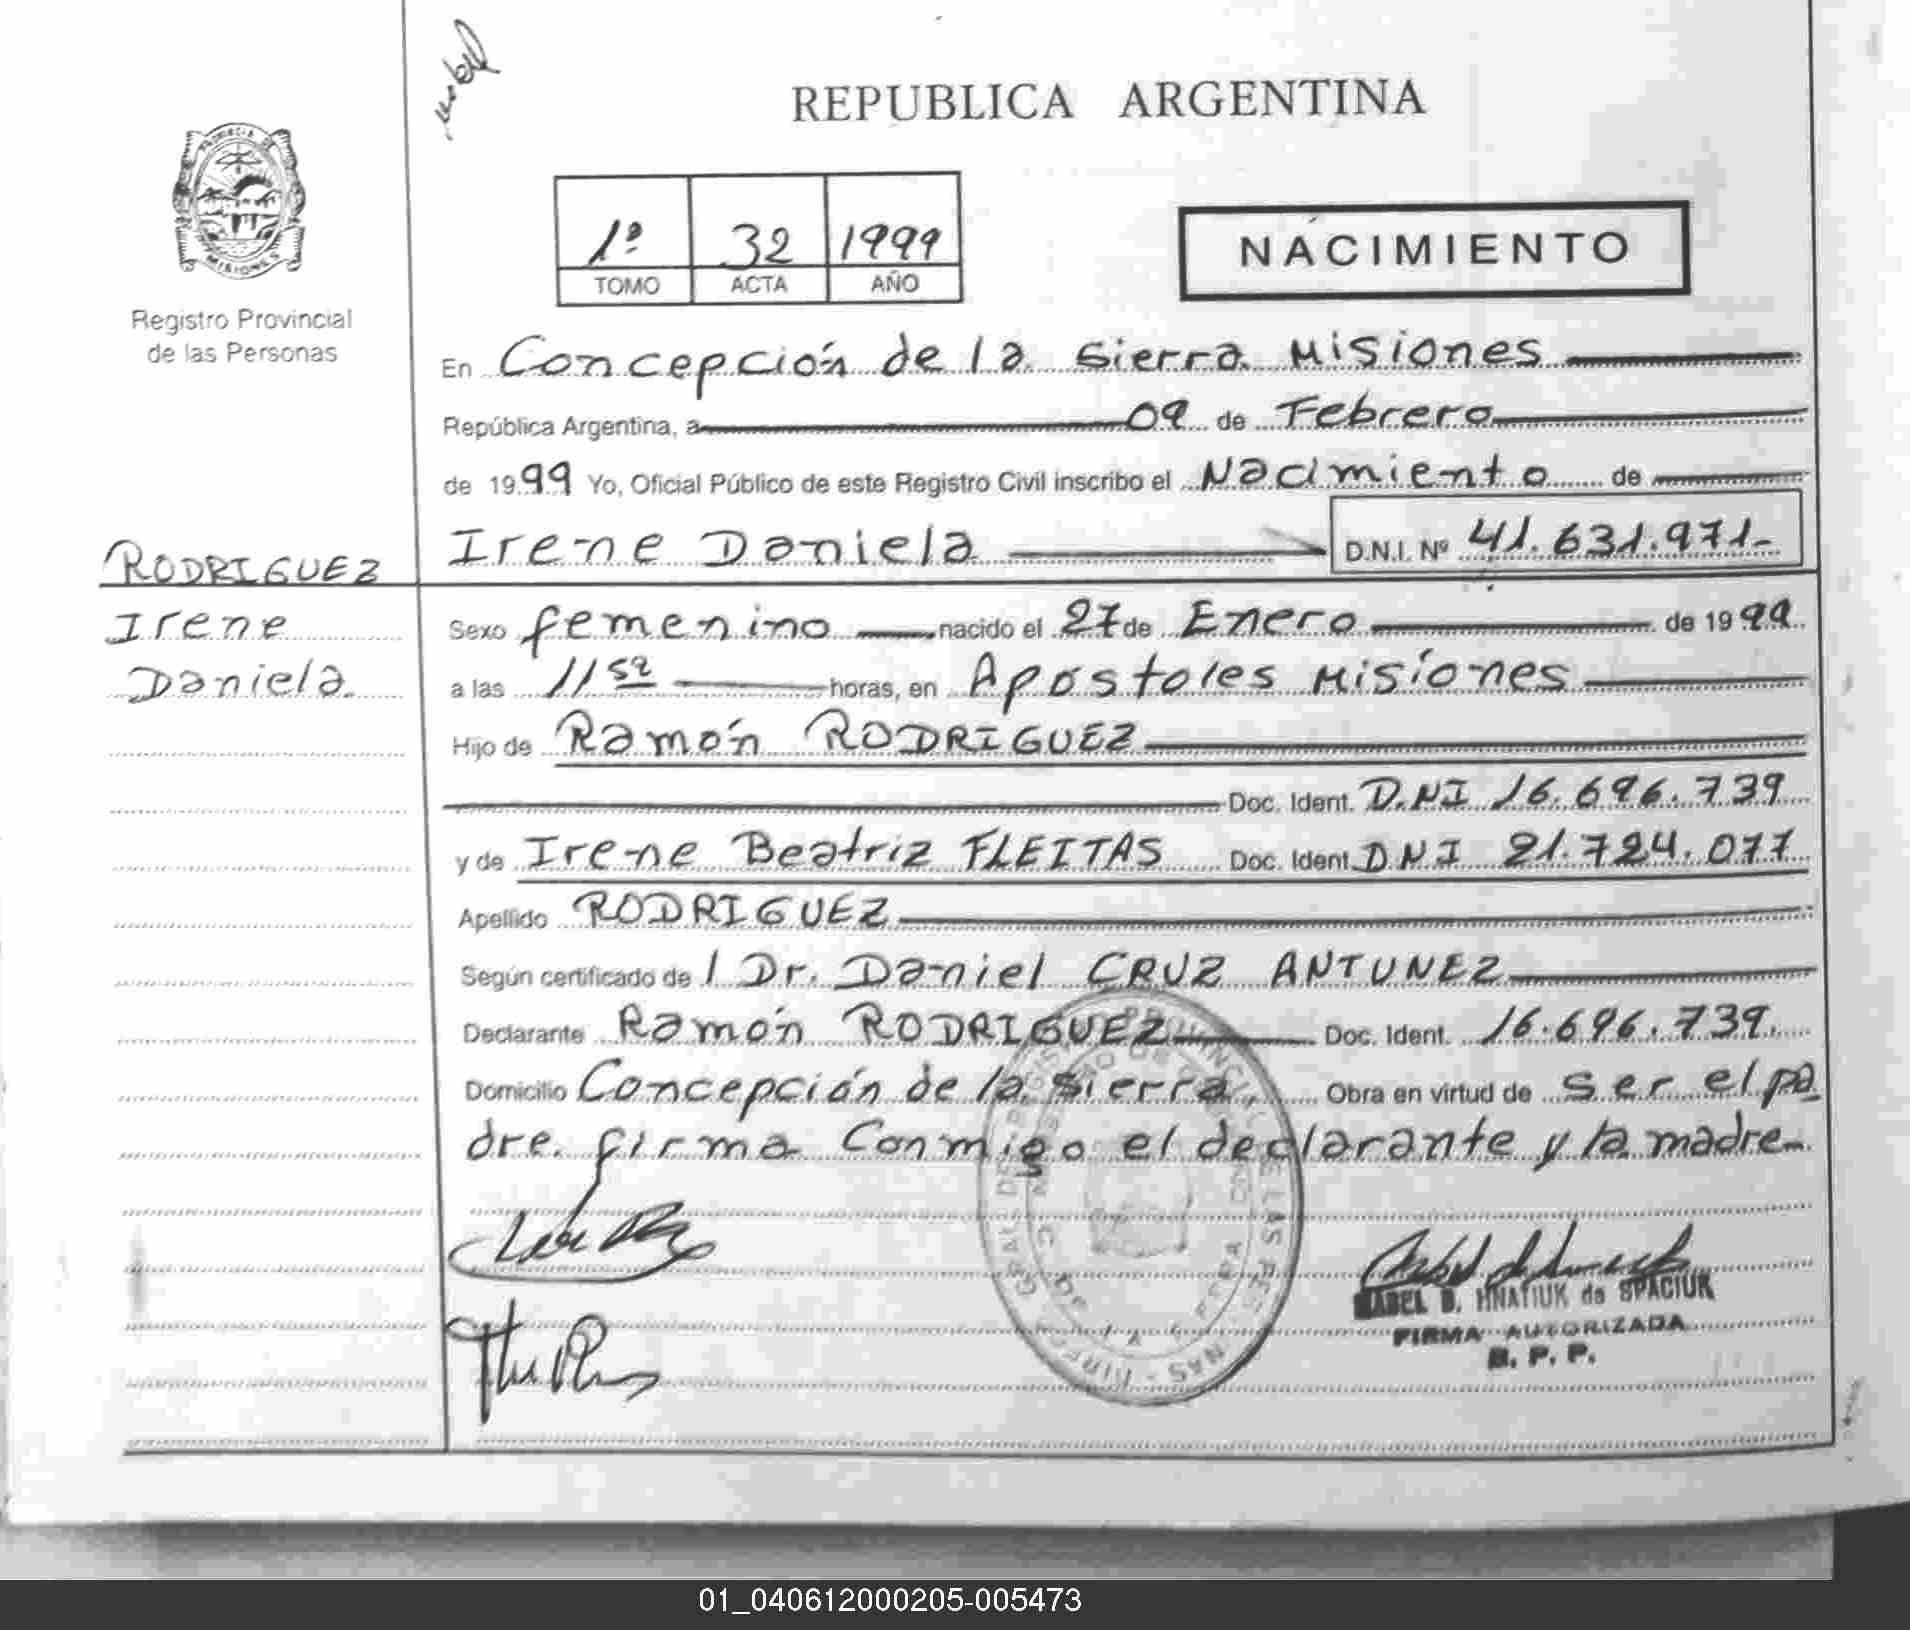 REPUBLICA ARGENTINA
PROVINCIA DE
MISIONES
Registro Provincial
de las Personas
1º 32 1999
TOMO ACTA AÑO
NACIMIENTO
En Concepción de la Sierra Misiones
República Argentina, a 09 de Febrero
de 1999 Yo, Oficial Público de este Registro Civil inscribo el Nacimiento de
Irene Daniela D.N.I. Nº 41.631.971-
RODRIGUEZ
Irene
Daniela.
Sexo femenino nacido el 27 de Enero de 1999.
a las 11 59 horas, en Apóstoles Misiones
Hijo de Ramón RODRIGUEZ
Doc. Ident. D.NI 16.696.739
y de Irene Beatriz FLEITAS Doc. Ident. DNI 21.724.077
Apellido RODRIGUEZ
Según certificado de l Dr. Daniel CRUZ ANTUNEZ
Declarante Ramón RODRIGUEZ Doc. Ident. 16.696.739.
Domicilio Concepción de la Sierra Obra en virtud de ser el pa
dre. firma Conmigo el declarante y la madre-
MABEL B. HNATIUK de SPACIUK
FIRMA AUTORIZADA
R. P. P.
01_040612000205-005473